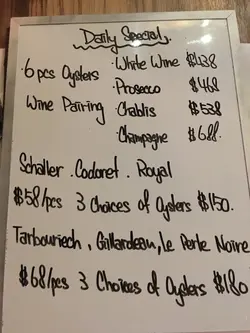 Daily Special.
· White Wine $438
· 6 pcs Oysters
· Prosecco $468
Wine Pairing
· Chablis $538
· Champagne $688.
Schaller . Cadoret . Royal
$58/pcs 3 Choices of Oysters $150.
Tarbouriech , Gillardeau, Le Perle Noire
$68/pcs 3 Choices of Oysters $180